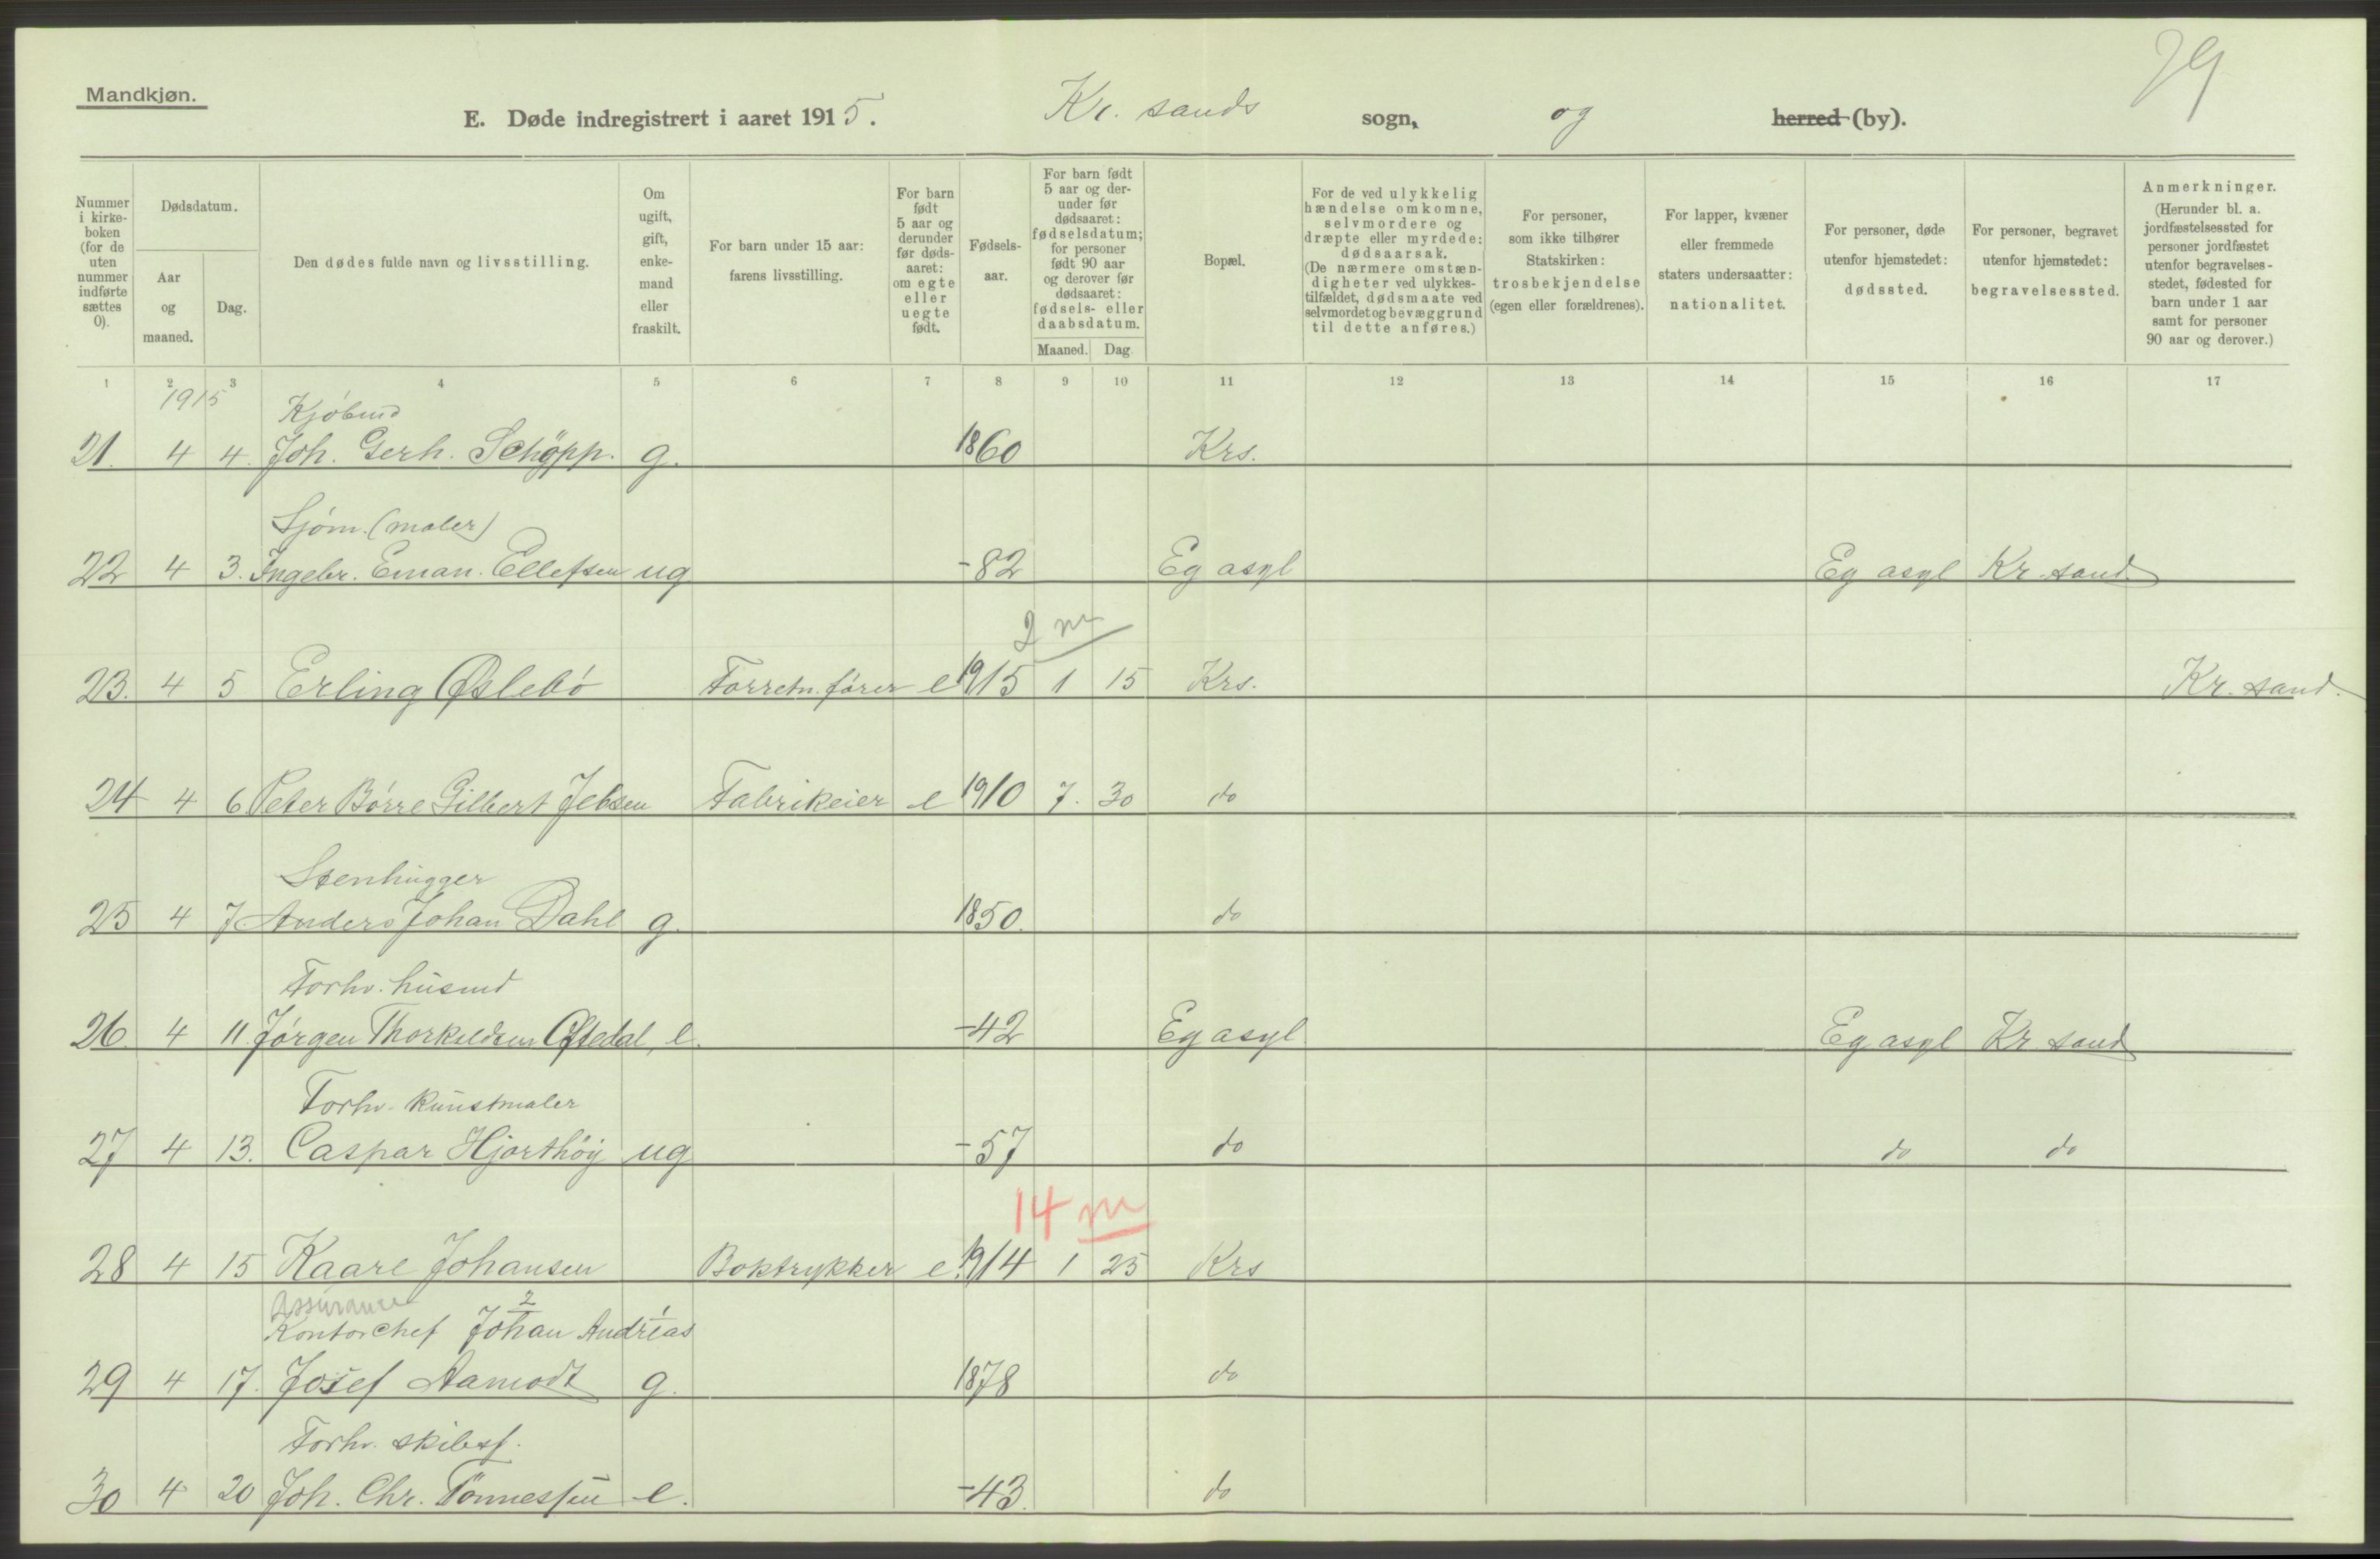 Mandkjøn.
29
E. Døde indregistrert i aaret 1915. Kr. sands sogn, og herred (by).
Nummer i kirke-boken (for de uten nummer indførte sættes 0).
Dødsdatum.
Aar og maaned.
Dag.
Den dødes fulde navn og livsstilling.
Om ugift, gift, enke-mand eller fraskilt.
For barn under 15 aar: farens livsstilling.
For barn født 5 aar og derunder før døds-aaret: om egte eller uegte født.
Fødsels-aar.
For barn født 5 aar og der-under før dødsaaret: fødselsdatum; for personer født 90 aar og derover før dødsaaret: fødsels- eller daabsdatum.
Maaned. Dag
Bopæl.
For de ved ulykkelig hændelse omkomne, selvmordere og dræpte eller myrdede: dødsaarsak. (De nærmere omstæn-digheter ved ulykkes-tilfældet, dødsmaate ved selvmordet og bevæggrund til dette anføres.)
For personer, som ikke tilhører Statskirken: trosbekjendelse (egen eller forældrenes).
For lapper, kvæner eller fremmede staters undersaatter: nationalitet.
For personer, døde utenfor hjemstedet: dødssted.
For personer, begravet utenfor hjemstedet: begravelsessted.
Anmerkninger. (Herunder bl. a. jordfæstelsessted for personer jordfæstet utenfor begravelses-stedet, fødested for barn under 1 aar samt for personer 90 aar og derover.)
1 2 3 4 5 6 7 8 9 10 11 12 13 14 15 16 17
1915
Kjöbmd
21. 4 4. Joh. Gerh. Schöpp. g. 1860 Krs.
Sjöm. (maler)
22 4 3. Ingebr. Eman. Ellefsen ug -82 Eg asyl Eg asyl Kr. sand.
2 m
23. 4 5 Erling Øslebö Forretn. förer e 1915 1 15 Krs. Kr. sand.
24 4 6 Peter Börre Gilbert Jebsen Fabrikeier e 1910 7. 30 do
Stenhugger
25 4 7 Anders Johan Dahl g. 1850. do
Forhv. husmd
26. 4 11. Jörgen Thorkildsen Oftedal, e. -42 Eg asyl. Eg asyl Kr sand
Forhv. kunstmaler
27 4 13. Caspar Hjorthöy ug -57 do do do
14 m
28 4 15 Kaare Johansen Boktrykker e. 1914 1 25 Krs
Assurance
2 1
Kontorchef Johan Andrias
29 4 17. Josef Aamodt g. 1878 do
Forhv. skibsf.
30 4 20 Joh. Chr. Tönnessen e. -43. do